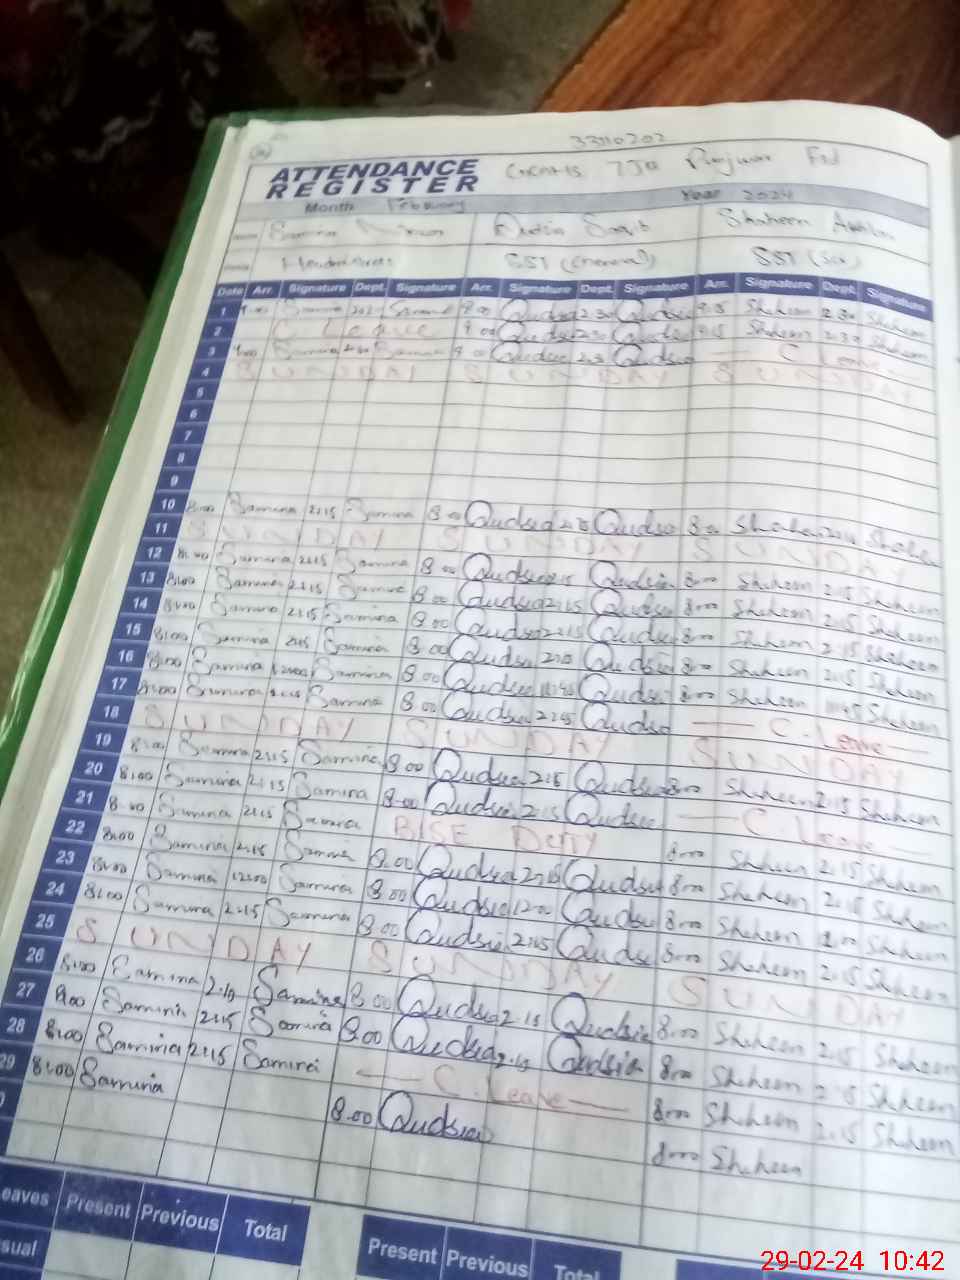 33110202
ATTENDANCE
REGISTER
Month February Year 2024
Samina Qudsia Shaheen
SST (General) SST (Sci)
Date Arr. Signature Dept. Signature Arr. Signature Dept. Signature Arr. Signature Dept. Signature
1 9:00 Samina 9.00 Qudsia 2.30 Qudsia 9:15 Shaheen 2:30 Shaheen
2 C Leave 9.00 Qudsia 2.30 Qudsia 9:15 Shaheen 2:30 Shaheen
3 9:00 Samina Samina 9.00 Qudsia Qudsia C Leave
4 SUNDAY SUNDAY SUNDAY
5
6
7
8
9
10 8:00 Samina 2:15 Samina 8.00 Qudsia 2.15 Qudsia 8:00
11 SUNDAY SUNDAY SUNDAY
12 8:00 Samina 2:15 Samina 8.00 Qudsia 2.15 Qudsia 8:00 Shaheen 2:15 Shaheen
13 8:00 Samina 2:15 Samina 8.00 Qudsia 2.15 Qudsia 8:00 Shaheen 2:15 Shaheen
14 8:00 Samina 2:15 Samina 8.00 Qudsia 2.15 Qudsia 8:00 Shaheen 2:15 Shaheen
15 8:00 Samina 2:15 Samina 8.00 Qudsia 2.15 Qudsia 8:00 Shaheen 2:15 Shaheen
16 8:00 Samina 12:00 Samina 8.00 Qudsia 11:45 Qudsia 8:00 Shaheen 11:45 Shaheen
17 8:00 Samina 2:15 Samina 8.00 Qudsia 2:15 Qudsia C. Leave
18 SUNDAY SUNDAY SUNDAY
19 8:00 Samina 2:15 Samina 8.00 Qudsia 2.15 Qudsia 8:00 Shaheen 2:15 Shaheen
20 8:00 Samina 2:15 Samina 8.00 Qudsia 2.15 Qudsia C Leave
21 8:00 Samina 2:15 Samina BISE Duty 8:00 Shaheen 2:15 Shaheen
22 8:00 Samina 2:15 Samina 8.00 Qudsia 2.15 Qudsia 8:00 Shaheen 2:15 Shaheen
23 8:00 Samina 12:00 Samina 8.00 Qudsia 12.00 Qudsia 8:00 Shaheen 12:00 Shaheen
24 8:00 Samina 2:15 Samina 8.00 Qudsia 2.15 Qudsia 8:00 Shaheen 2:15 Shaheen
25 SUNDAY SUNDAY SUNDAY
26 8:00 Samina 2:15 Samina 8.00 Qudsia 2.15 Qudsia 8:00 Shaheen 2:15 Shaheen
27 8:00 Samina 2:15 Samina 8.00 Qudsia 2.15 Qudsia 8:00 Shaheen 2:15 Shaheen
28 8:00 Samina 2:15 Samina C. Leave 8:00 Shaheen 2:15 Shaheen
29 8:00 Samina 8.00 Qudsia 8:00 Shaheen
eaves Present Previous Total Present Previous Total
sual
29-02-24 10:42